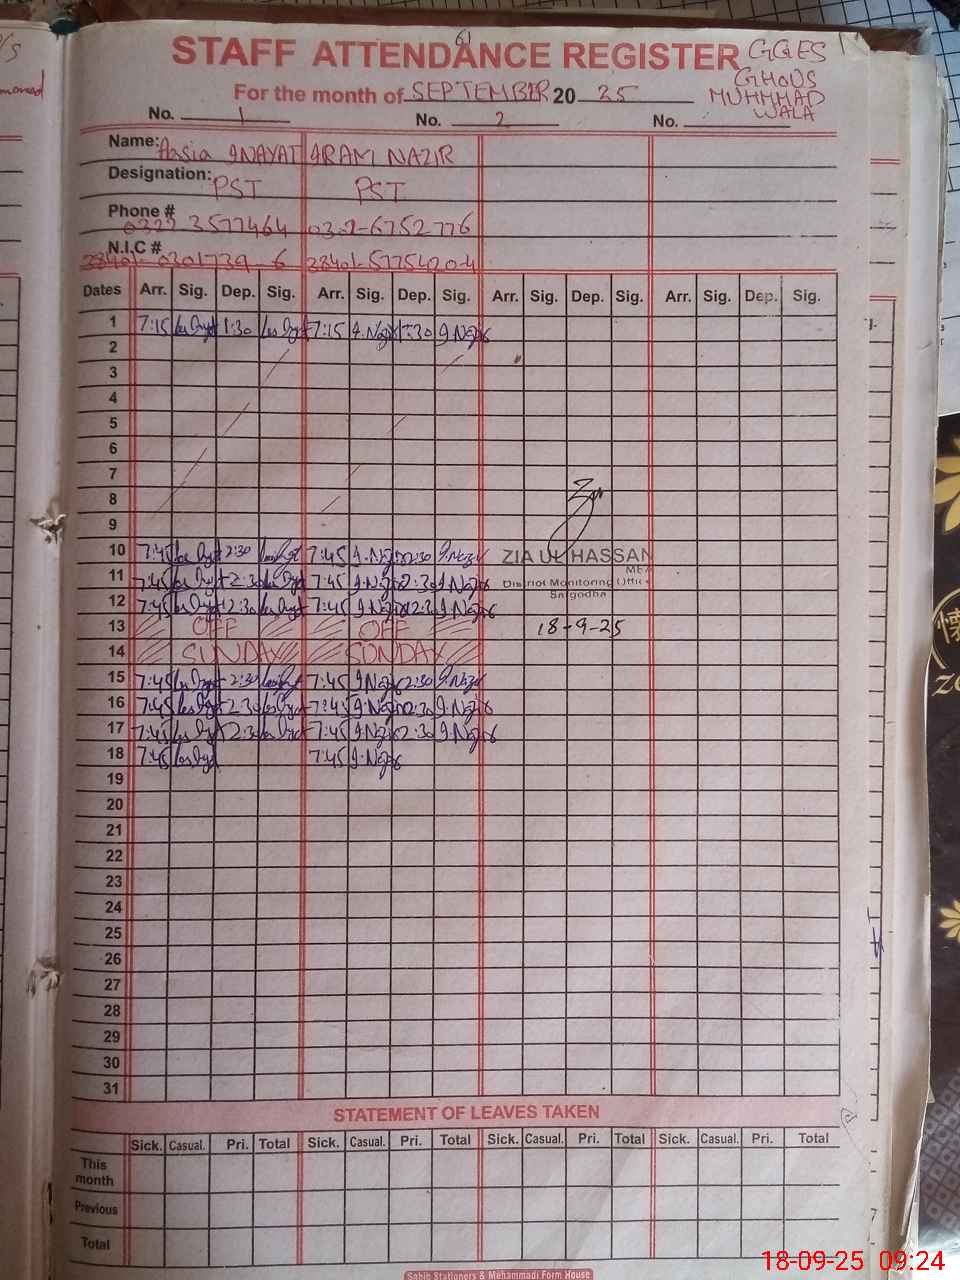 61
STAFF ATTENDANCE REGISTER GGES
For the month of SEPTEMBER 20 25 GHOUS
MUHMMAD
WALA
No. 1 No. 2 No.
Name: Aasia INAYAT IRAM NAZIR
Designation: PST PST
Phone # 0322 3577464 0302-6752776
N.I.C # 38401-0301739-6 38401-5775420-4
Dates Arr. Sig. Dep. Sig. Arr. Sig. Dep. Sig. Arr. Sig. Dep. Sig. Arr. Sig. Dep. Sig.
1 7:15 1:30 7:15 I.Nazir 1:30 I.Nazir
2
3
4
5
6
7
8
9
10 7:45 2:30 7:45 I.Nazir 2:30 I.Nazir
ZIA UL HASSAN
11 7:45 2:30 7:45 I.Nazir 2:30 I.Nazir
District Monitoring Office
Sargodha
12 7:45 2:30 7:45 I.Nazir 2:30 I.Nazir
13 OFF OFF 18-9-25
14 SUNDAY SUNDAY
15 7:45 2:30 7:45 I.Nazir 2:30 I.Nazir
16 7:45 2:30 7:45 I.Nazir 2:30 I.Nazir
17 7:45 2:30 7:45 I.Nazir 2:30 I.Nazir
18 7:45 7:45 I.Nazir
19
20
21
22
23
24
25
26
27
28
29
30
31
STATEMENT OF LEAVES TAKEN
Sick. Casual. Pri. Total Sick. Casual. Pri. Total Sick. Casual. Pri. Total Sick. Casual. Pri. Total
This
month
Previous
Total
Sabir Stationers & Mehammadi Form House
18-09-25 09:24